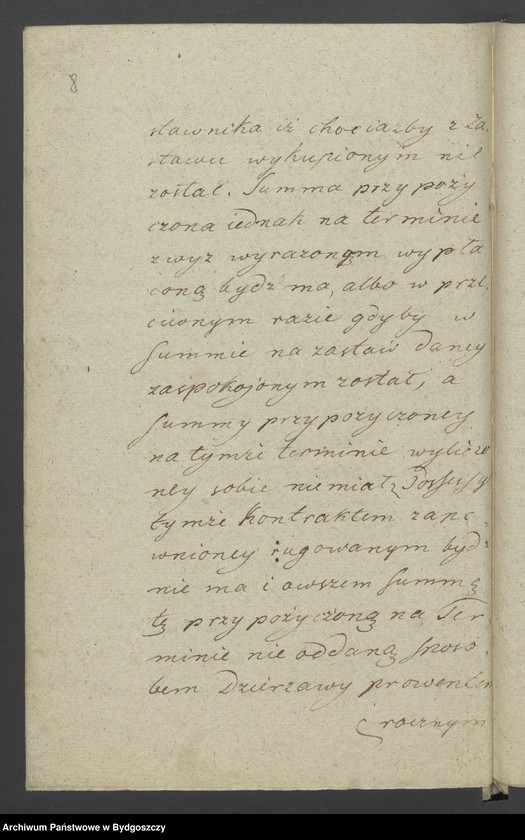 8
stawnika iż chociażby z za
stawu wykupionym nie
został. Summa przypoży
czona iednak na terminie
zwyz wyrazonym wypła
coną bydz ma, albo w prze
ciwnym razie gdyby w
Summie na zastaw daney
zaspokojonym został, a
Summy przypozyczoney
na tymże terminie wyliczo
ney sobie niemiał, Possessy
tymże Kontraktem zape
wnioney rugowanym bydz
nie ma i owszem Summą
tą przypożyczoną na Ter
minie nie oddaną sposo
bem Dzierzawy prowentem
rocznym
Archiwum Państwowe w Bydgoszczy